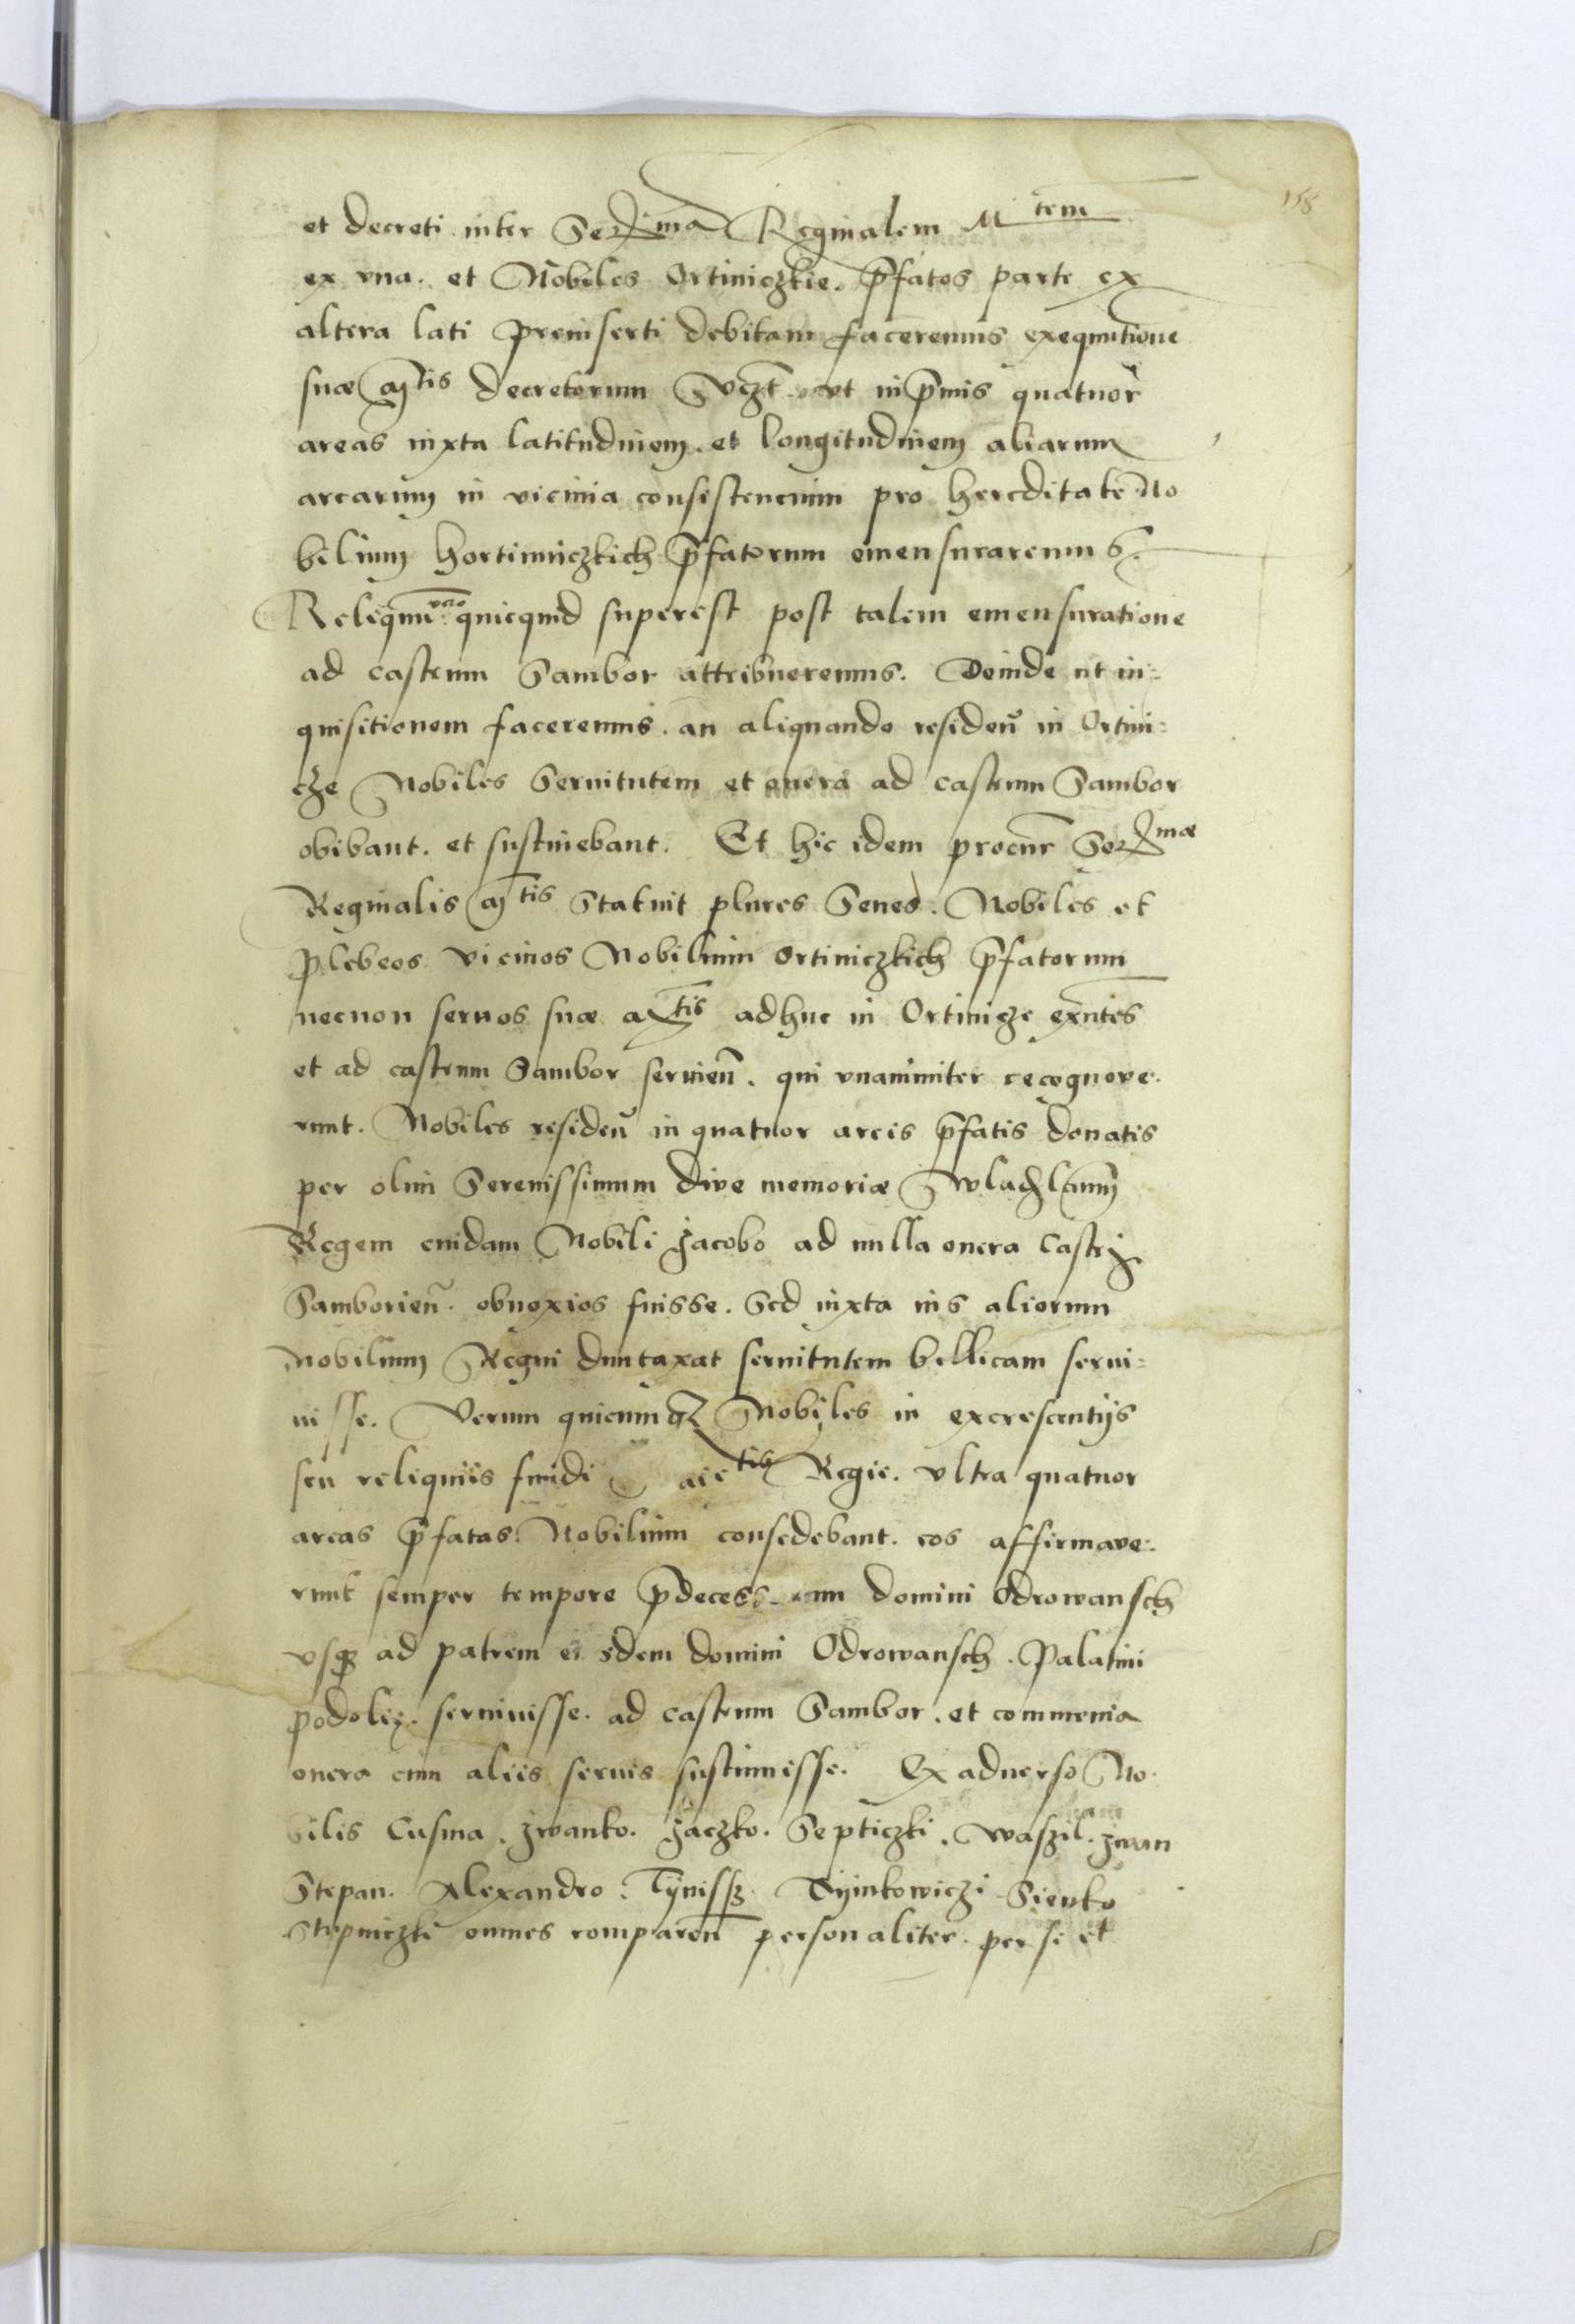 158
et decreti inter Ser̃ma Reginalem Mtem
ex vna. et Nobiles Ortiniczkie. p̄fatos parte ex
altera lati preinserti debitam faceremus exequutione
suæ Mtis decretorum vt inp̄mis quatuor
areas iuxta latitudinem. et longitudinem aliarum
arearum in vicinia consistencium pro hereditate No
bilium hortinniczkich p̄fatorum emensuraremus.
Reliquū vero quicquid superest post talem emensuratione
ad castrum Sambor attribueremus. Deinde ut in=
quisitionem faceremus. an aliquando residen̄ in Ortini=
cze Nobiles Seruitutem et onera ad castrum Sambor
obibant. et sustinebant. Et hic idem procur̄ Ser̃mæ
Reginalis Mtis Statuit plures Senes. Nobiles et
plebeos vicinos Nobilium Ortiniczkich p̄fatorum
necnon seruos suæ Mtis adhuc in Ortinicze exn̄tes
et ad castrum Sambor seruien̄. qui vnanimiter recognoue.
runt. Nobiles residen̄ in quatuor areis p̄fatis donatis
per olim Serenissimum dive memoriæ Wladislaum
Regem cuidam Nobili Jacobo ad nulla onera Castri
Samborien̄. obnoxios fuisse. Sed iuxta ius aliorum
Nobilium Regni duntaxat seruitutem bellicam serui=
uisse. Verum quicunqȝ Nobiles in excrescentijs
seu reliquiis fundi Regie. vltra quatuor
areas p̄fatas. Nobilium consedebant. eos affirmaue.
runt semper tempore domini Odrowansch
vsqȝ ad patrem domini Odrowansch. Palatini
podolię. seruiuisse. ad castrum Sambor. et commenia
onera cum aliis seruis sustinuisse. Ex aduerso No.
bilis Cusma. Jwanko. Jaczko. Septiczki. Waszil. Jwan
Stepan. Alexandro. Tymkowiczi Sienko
Stepniczki omnes comparen̄ personaliter. per se et